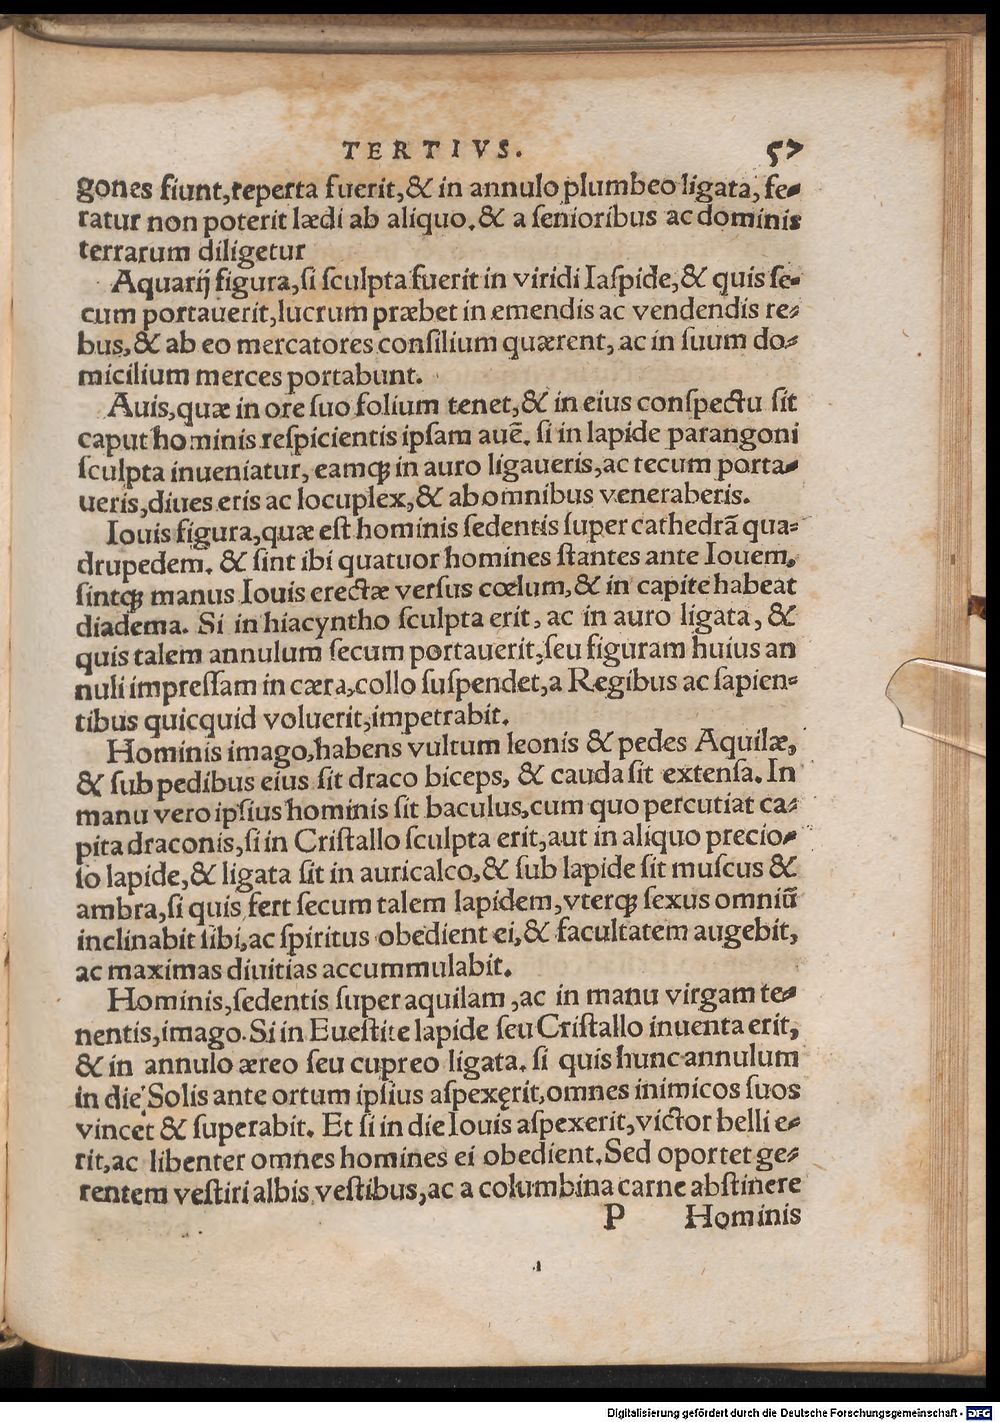 TERTIVS. 57
gones fiunt,reperta fuerit,& in annulo plumbeo ligata, fe-
ratur non poterit lædi ab aliquo.& a ſenioribus ac dominis
terrarum diligetur
Aquarij figura,ſi ſculpta fuerit in viridi Iaſpide,& quis ſe-
cum portauerit,lucrum præbet in emendis ac vendendis re-
bus,& ab eo mercatores conſilium quærent, ac in ſuum do-
micilium merces portabunt.
Auis,quæ in ore ſuo folium tenet,& in eius conſpectu ſit
caput hominis reſpicientis ipſam auē. ſi in lapide parangoni
ſculpta inueniatur, eamqꝫ in auro ligaueris,ac tecum porta-
ueris,diues eris ac locuplex,& ab omnibus veneraberis.
Iouis figura,quæ eſt hominis ſedentis ſuper cathedrā qua-
drupedem. & ſint ibi quatuor homines ſtantes ante Iouem,
ſintqꝫ manus Iouis erectæ verſus cœlum,& in capite habeat
diadema. Si in hiacyntho ſculpta erit, ac in auro ligata, &
quis talem annulum ſecum portauerit,ſeu figuram huius an
nuli impreſſam in cæra,collo ſuſpendet,a Regibus ac ſapien-
tibus quicquid voluerit,impetrabit.
Hominis imago,habens vultum leonis & pedes Aquilæ,
& ſub pedibus eius ſit draco biceps, & cauda ſit extenſa. In
manu vero ipſius hominis ſit baculus,cum quo percutiat ca-
pita draconis,ſi in Criſtallo ſculpta erit,aut in aliquo precio-
ſo lapide,& ligata ſit in auricalco,& ſub lapide ſit muſcus &
ambra,ſi quis fert ſecum talem lapidem,vterqꝫ ſexus omniū
inclinabit ſibi,ac ſpiritus obedient ei,& facultatem augebit,
ac maximas diuitias accummulabit.
Hominis,ſedentis ſuper aquilam ,ac in manu virgam te-
nentis,imago.Si in Eueſtite lapide ſeu Criſtallo inuenta erit,
& in annulo æreo ſeu cupreo ligata. ſi quis hunc annulum
in die Solis ante ortum ipſius aſpexęrit,omnes inimicos ſuos
vincet & ſuperabit. Et ſi in die Iouis aſpexerit,victor belli e-
rit,ac libenter omnes homines ei obedient.Sed oportet ge-
rentem veſtiri albis veſtibus,ac a columbina carne abſtinere
P Hominis
Digitalisierung gefördert durch die Deutsche Forschungsgemeinschaft - DFG